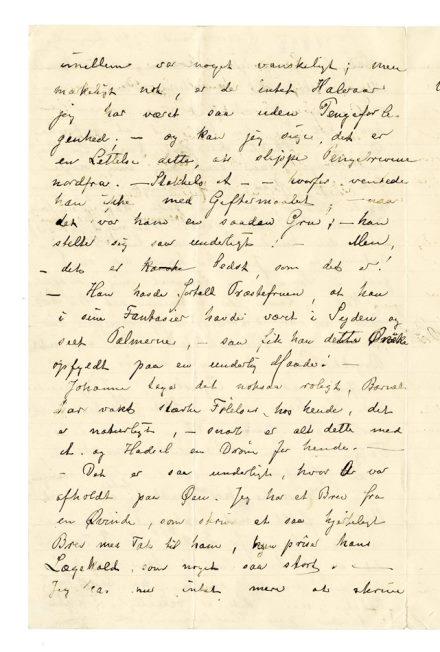 imellem var noget vanskeligt; men
mækeligt nok, er de intet Halvaar
jeg har været saa uden Pengeforle-
genhed, – og kan jeg sige, det er
en Lettelse dette, at slippe Pengebrevene
nordfra. – Stakkels – – hvorfor ventede
han ikke med Giftermaalet; – naa
det var ham en saadan Gru; – han
stelte sig saa underligt! – Men,
– det er bedst, som det er!
– Han havde fortalt Præstefruen, at han
i sine Fantasier havde været i Syden og
seet Palmerne, – saa fik han dette Ønske
opfyldt paa en underlig Maade! –
Johanne tager det noksaa roligt, Barnet
har vakt stærke Følelser hos hende, det
er naturligt, – snart er alt dette med
og Hadsel en Drøm for hende. –
– Det er saa underligt, hvor var
afholdt paa Øen. Jeg har et Brev fra
en Qvinde, som skrev et saa hjerteligt
Brev med Tak til ham, hun priser hans
Lægekald som noget saa stort. –
Jeg har nu intet mere at skrive